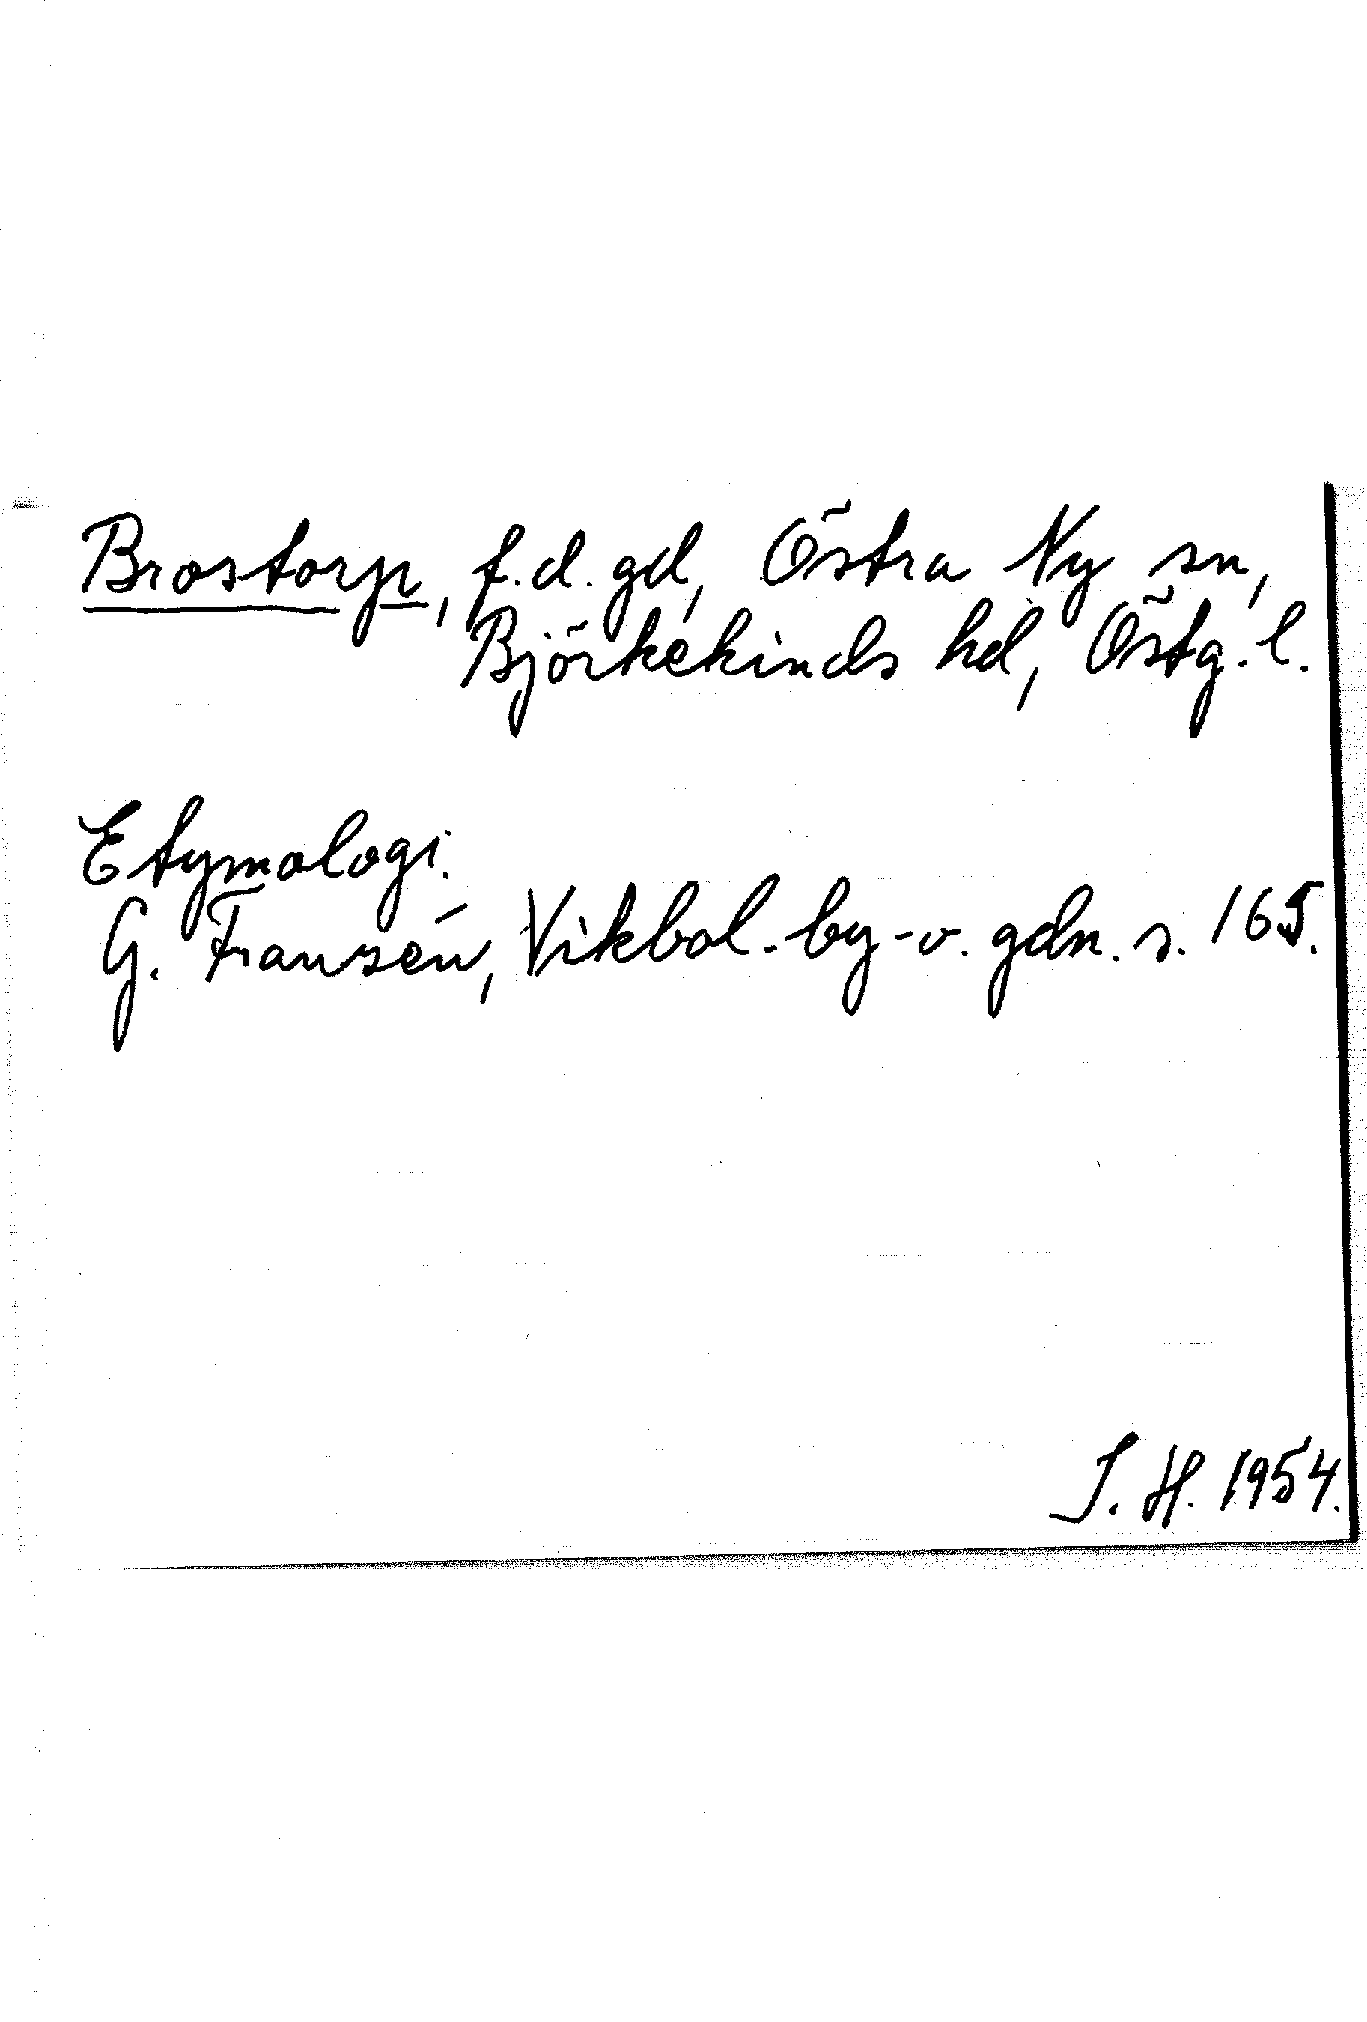 Brostorp, f.d. gd, Östra Ny sn,
Björkekinds hd, Östg. l.
Etymologi.
G. Franzén, Vikbol. by- o. gdn. s. 165.
S. H. 1954.